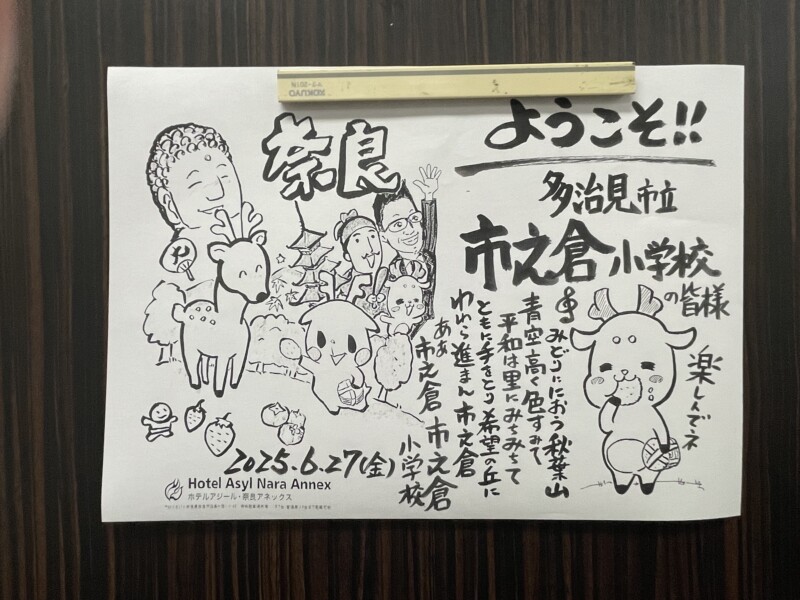 奈良
ようこそ!!
多治見市立
市之倉小学校
の皆様
みどりにおう秋葉山
青空高く色すみて
平和は里にみちみちて
ともに手をとり希望の丘に
われら進まん市之倉
ああ
市之倉市之倉
小学校
楽しんでネ
2025.6.27(金)
Hotel Asyl Nara Annex
ホテルアジール・奈良アネックス
KOKUYO